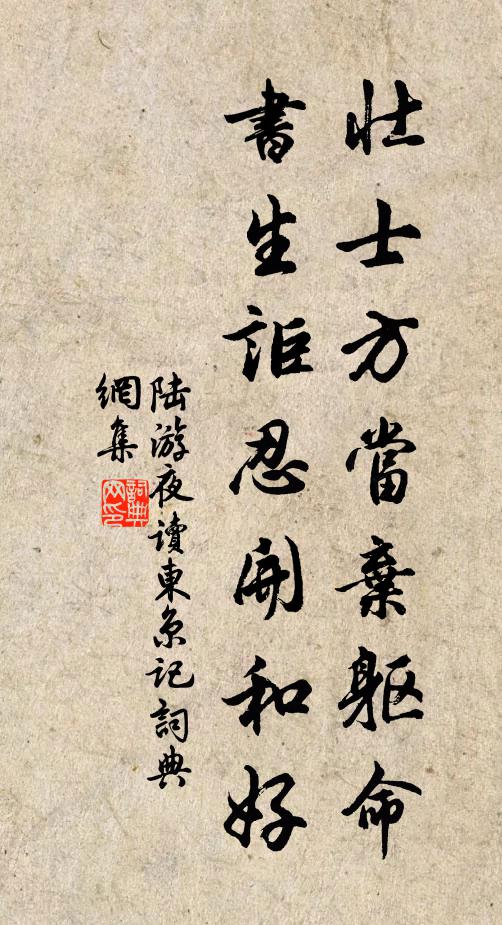 壯士方當棄軀命
書生詎忍開和好
陸游夜讀東京記詞典
網集
詞典
网印